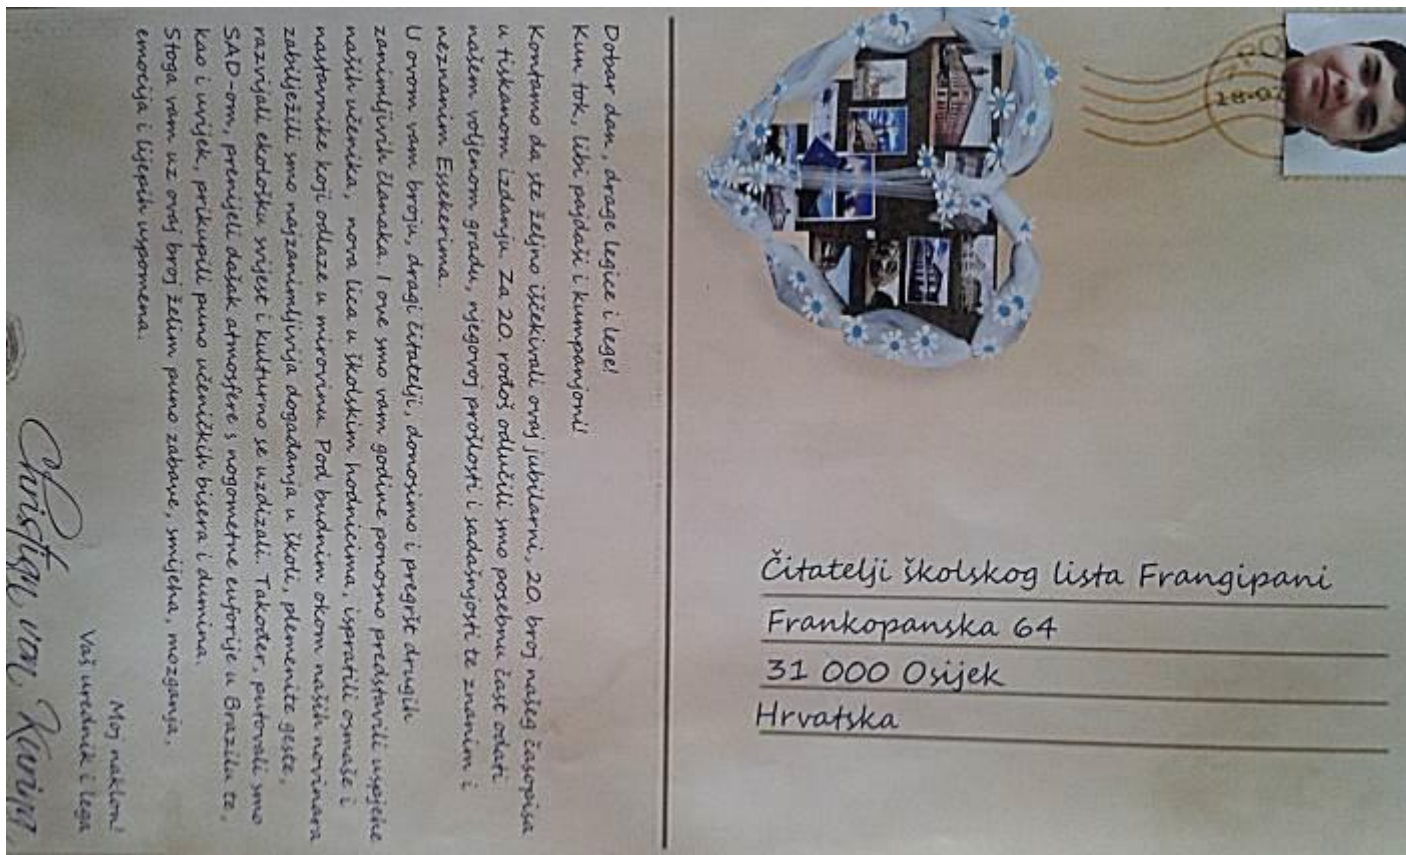 Dobar dan, drage legice i lege!
Kun tok, libi pajdaši i kumpanjoni!
Kontamo da ste željno iščekivali ovaj jubilarni, 20. broj našeg časopisa
u tiskanom izdanju. Za 20. rođoš odlučili smo posebnu čast odati
našem voljenom gradu, njegovoj prošlosti i sadašnjosti te znanim i
neznanim Essekerima.
U ovom vam broju, dragi čitatelji, donosimo i pregršt drugih
zanimljivih članaka. I ove smo vam godine ponosno predstavili uspješne
naših učenika, nova lica u školskim hodnicima, ispratili osmaše i
nastavnike koji odlaze u mirovinu. Pod budnim okom naših novinara
zabilježili smo najzanimljivija događanja u školi, plemenite geste,
razvijali ekološku svijest i kulturno se uzdizali. Također, putovali smo
SAD-om, prenijeli dašak atmosfere s nogometne euforije u Brazilu te,
kao i uvijek, prikupili puno učeničkih bisera i dumina.
Stoga vam uz ovaj broj želim puno zabave, smijeha, mozganja,
emocija i lijepih uspomena.
Moj naklon!
Vaš urednik i lega
Christian von
18-02
Čitatelji školskog lista Frangipani
Frankopanska 64
31 000 Osijek
Hrvatska